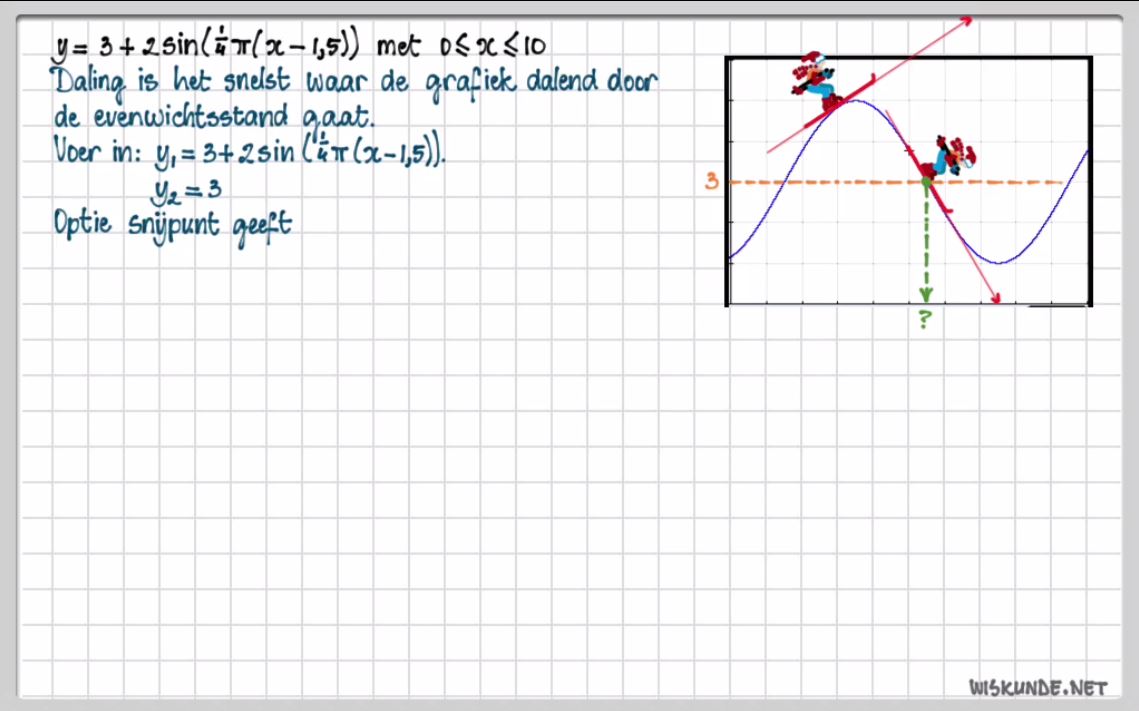 y = 3 + 2 sin(¼π(x − 1,5)) met 0 ⩽ x ⩽ 10
Daling is het snelst waar de grafiek dalend door
de evenwichtsstand gaat.
Voer in: y₁ = 3 + 2 sin (¼π(x − 1,5)).
y₂ = 3
Optie snijpunt geeft
3
?
WISKUNDE.NET